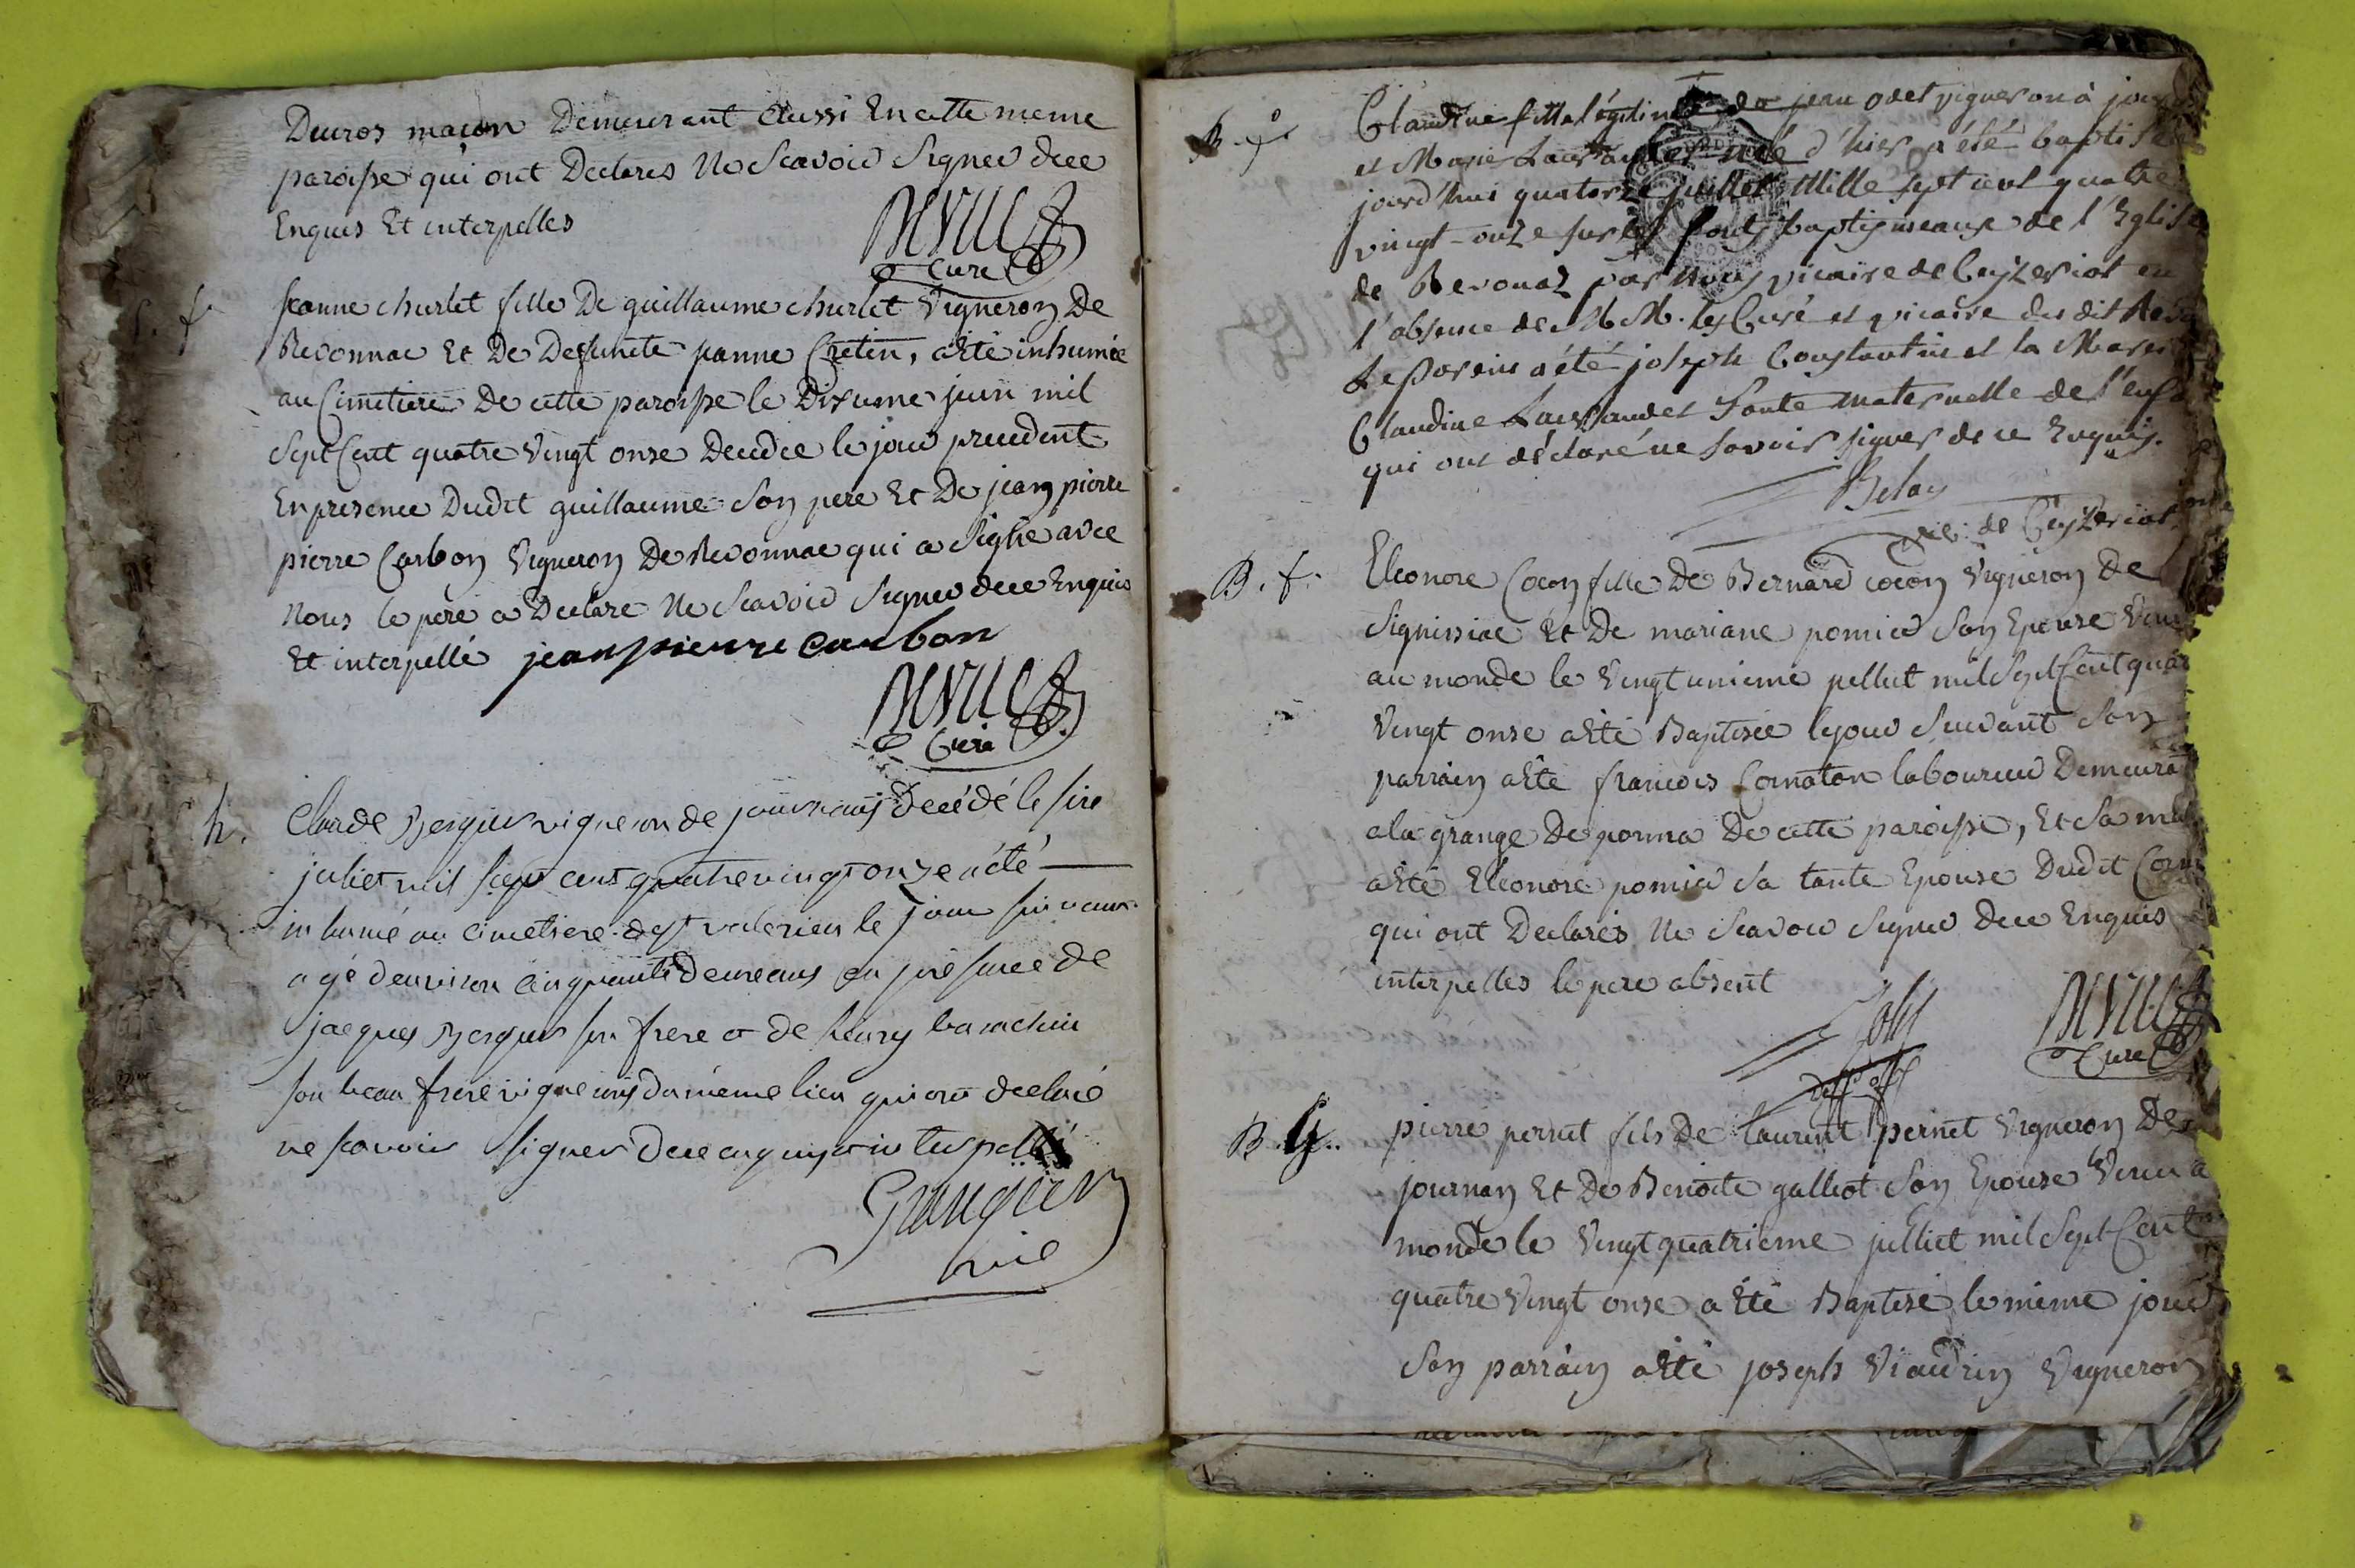 Ducros maçon Demeurant Aussi En cette meme
paroisse qui ont Declarés Ne Scavoir Signer dece
Enquis Et interpelles
Curé
S. f.
jeanne churlet fille De guillaume churlet Vigneron De
Revonnac Et De Defuncte jeanne Cretin, aEté inhumée
au Cimetiere De cette paroisse le Dixieme juin mil
Sept Cent quatre Vingt onze Decedee le jour precedent
En presence Dudit guillaume Son pere Et De jean pierre
pierre Carbon Vigneron De Revonnac qui a Signé avec
Nous le pere a Declare Ne Scavoir Signer dece Enquis
Et interpellé jean pierre Carbon
Curé
h.
Claude Berger vigneron de journans Decédé le sixe
juliet mil sept cent quatre vingt onze a été
inhumé au cimetiere de st valerien le jour suivant
agé denviron cinquante Deux ans en presence de
jacques Berger son frere et de henry barachin
son beau frere vignerons du même lieu qui ont declaré
ne scavoir signer dece enquis et interpellé
Grangier
vic
B. f.
Claudine fille légitime de jean odet vigneron à jour
et Marie née d'hier a été baptisée
jourd'hui quatorze juillet Mille sept cent quatre
vingt-onze sur les fonts baptismeaux de l'Eglise
de Revonaz par Nous vicaire de Ceyzeriat en
l'absence de M M. les Curé et vicaire du dit
Le Parrein a été joseph Constantin et la Marei
Claudine Tante maternelle de l'enfa
qui ont déclaré ne savoir signer de ce Enquis.
Belay
vic. de Ceyzeriat
B. f.
Eleonore Cocon fille De Bernard cocon Vigneron De
Signissiac Et De mariane pomier Son Epouse Venu
au monde le Vingt unieme juilliet mil Sept Cent quat
Vingt onze aEté Baptisée le jour Suivant Son
parrain aEté francois Cornaton laboureur Demeurant
ala grange De ponna De cette paroisse, Et Sa ma
aEté Eleonore pomier Sa tante Epouse Dudit Corn
qui ont Declarés Ne Scavoir Signer Dece Enquis
interpelles le pere absent
Curé
B. G.
pierre pernet fils De laurent pernet Vigneron De
journan Et De Benoite galliot Son Epouse Venu a
monde le Vingt quatrieme juilliet mil Sept Cent
quatre Vingt onze a Eté Baptisé le même jour
Son parrain aEté joseph Viaudrin Vigneron